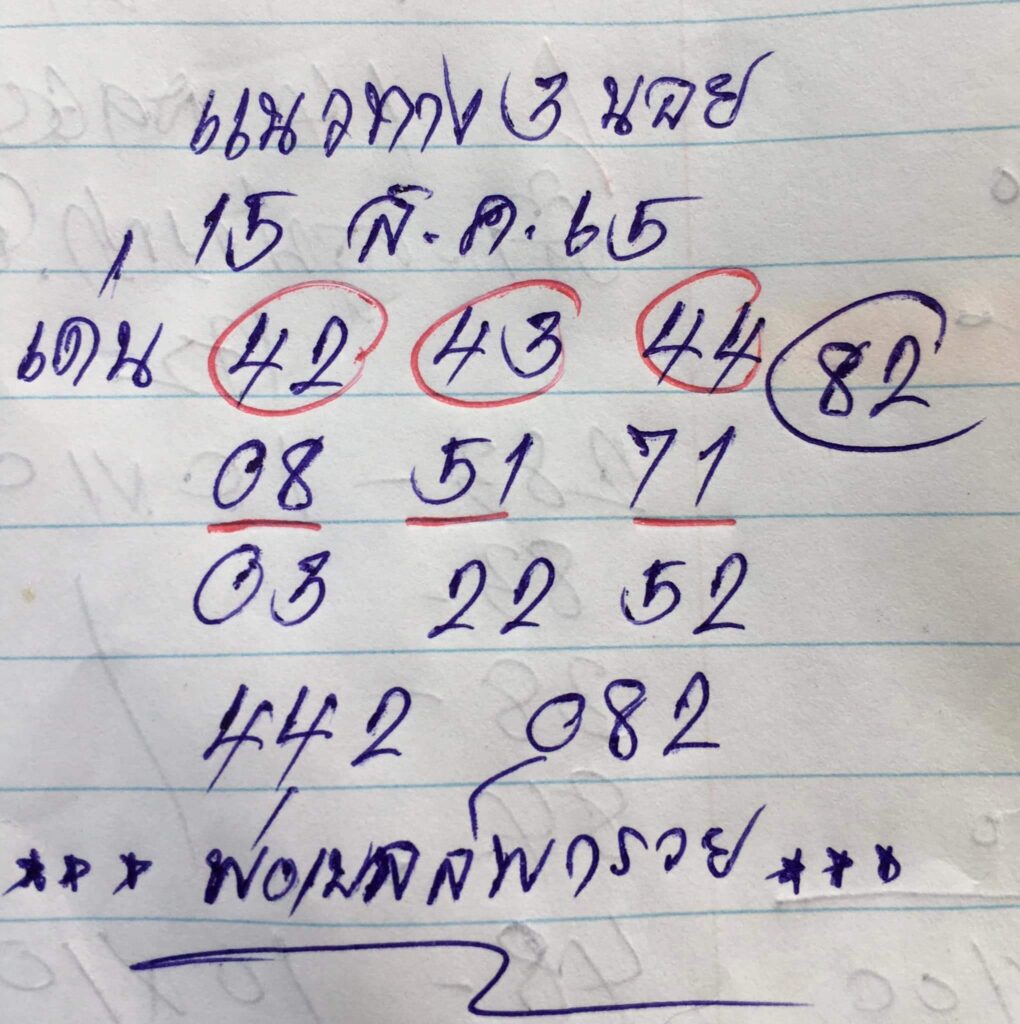 แนวทาง 3 นอย
15 ส.ค. 65
เด่น 42 43 44 82
08 51 71
03 22 52
442 082
*** พ่อ พารวย ***